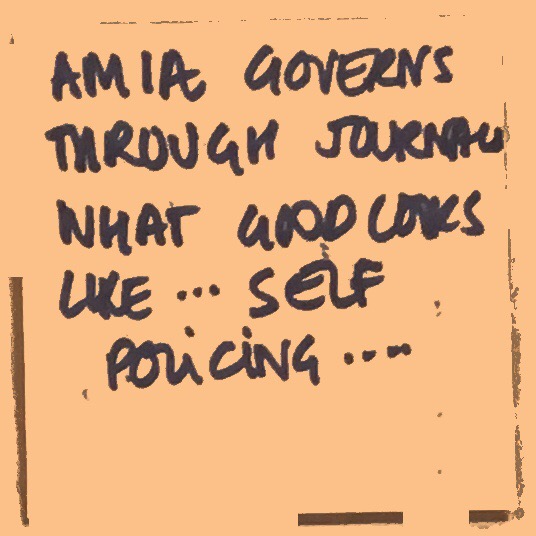 AMIA GOVERNS
THROUGH JOURNAL
WHAT GOOD LOOKS
LIKE ... SELF
POLICING ....